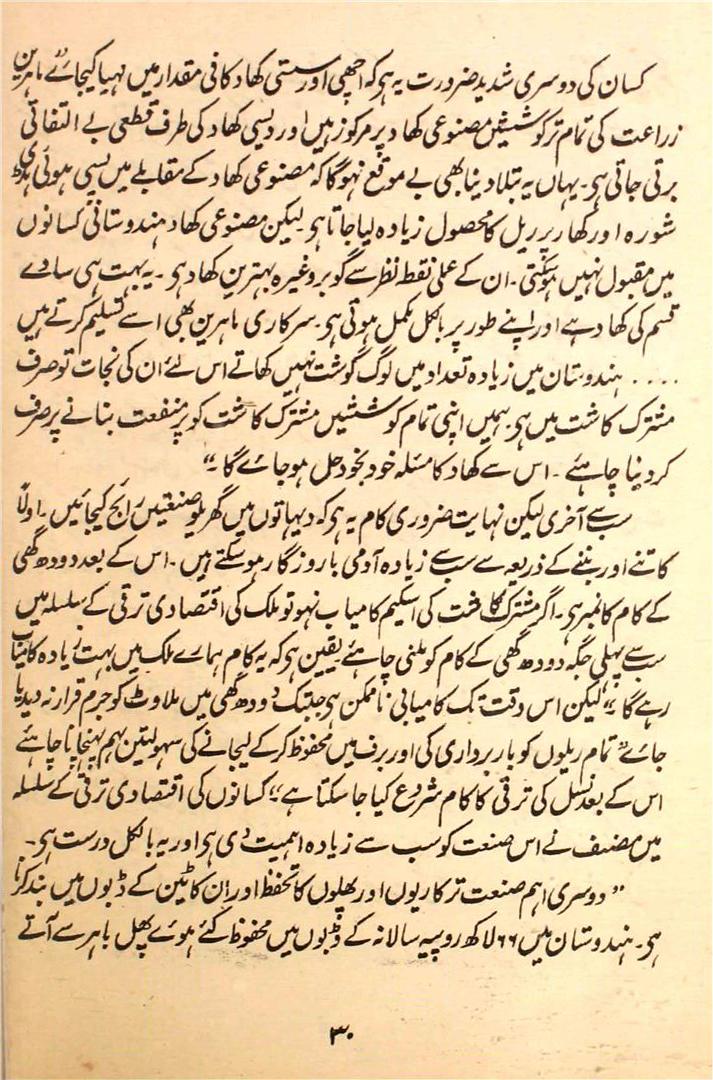 کسان کی دوسری شدید ضرورت یہ ہو کہ اچھی اور سستی کھاد کافی مقدار میں مہیا کیجائے "ماہرین
زراعت کی تمام تر کوششیں مصنوعی کھاد پر مرکوز ہیں اور دیسی کھاد کی طرف قطعی بے التفاتی
برتی جاتی ہو۔ یہاں یہ بتلا دینا بھی بے موقع نہوگا کہ مصنوعی کھاد کے مقابلے میں پسی ہوئی ہڈی
شورہ اور کھار پر ریل کا محصول زیادہ لیا جاتا ہو لیکن مصنوعی کھاد ہندوستانی کسانوں
میں مقبول نہیں ہوسکتی۔ ان کے عملی نقطہ نظر سے گوبر وغیرہ بہترین کھاد ہو۔ یہ بہت ہی سادے
قسم کی کھاد ہے اور اپنے طور پر بالکل مکمل ہوتی ہو۔ سرکاری ماہرین بھی اسے تسلیم کرتے ہیں
.... ہندوستان میں زیادہ تعداد میں لوگ گوشت نہیں کھاتے اس لئے ان کی نجات تو صرف
مشترک کاشت میں ہو۔ ہمیں اپنی تمام کوششیں مشترک کاشت کو پر منفعت بنانے پر صرف
کر دینا چاہئے۔ اس سے کھاد کا مسئلہ خود بخود حل ہو جائے گا۔"
سب سے آخری لیکن نہایت ضروری کام یہ ہو کہ دیہاتوں میں گھریلو صنعتیں رائج کیجائیں۔ اولاً
کاتنے اور بننے کے ذریعہ سے سب سے زیادہ آدمی با روزگار ہو سکتے ہیں۔ اس کے بعد دودھ گھی
کے کام کا نمبر ہو۔ اگر مشترک کاشت کی اسکیم کامیاب نہو تو ملک کی اقتصادی ترقی کے سلسلہ میں
سب سے پہلی جگہ دودھ گھی کے کام کو ملنی چاہئے یقین ہو کہ یہ کام ہمارے ملک میں بہت زیادہ کامیاب
رہے گا۔" لیکن اس وقت تک کامیابی ناممکن ہو جبتک دودھ گھی میں ملاوٹ کو جرم قرار نہ دیدیا
جائے" تمام ریلوں کو بار برداری کی اور برف میں محفوظ کر کے لیجانے کی سہولتیں بہم پہنچانا چاہئے
اس کے بعد نسل کی ترقی کا کام شروع کیا جا سکتا ہے" کسانوں کی اقتصادی ترقی کے سلسلہ
میں مصنف نے اس صنعت کو سب سے زیادہ اہمیت دی ہو اور یہ بالکل درست ہو۔
"دوسری اہم صنعت ترکاریوں اور پھلوں کا تحفظ اور ان کا ٹین کے ڈبوں میں بند کرنا
ہو۔ ہندوستان میں ۶۶ لاکھ روپیہ سالانہ کے ڈبوں میں محفوظ کئے ہوئے پھل باہر سے آتے
۳۰